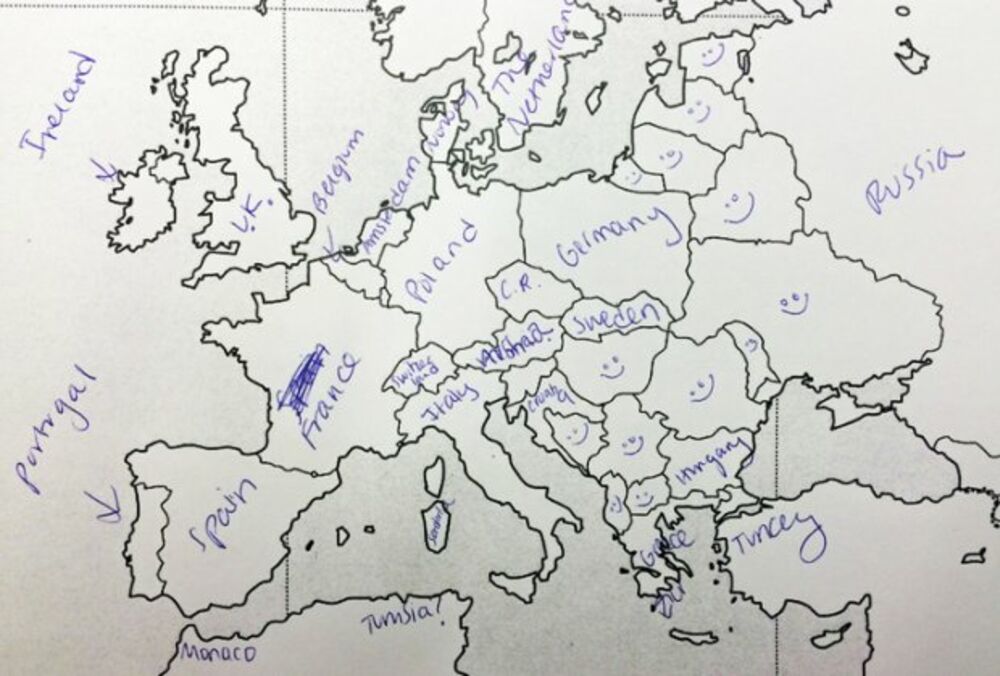 Ireland
U.K.
Belgium
Amsterdam
Norway
The
Netherland
Russia
Poland
Germany
C.R.
Sweden
Austria
Italy
France
Croatia
Hungary
Portugal
Spain
Sardinia
Greece
Turkey
Tunisia?
Monaco